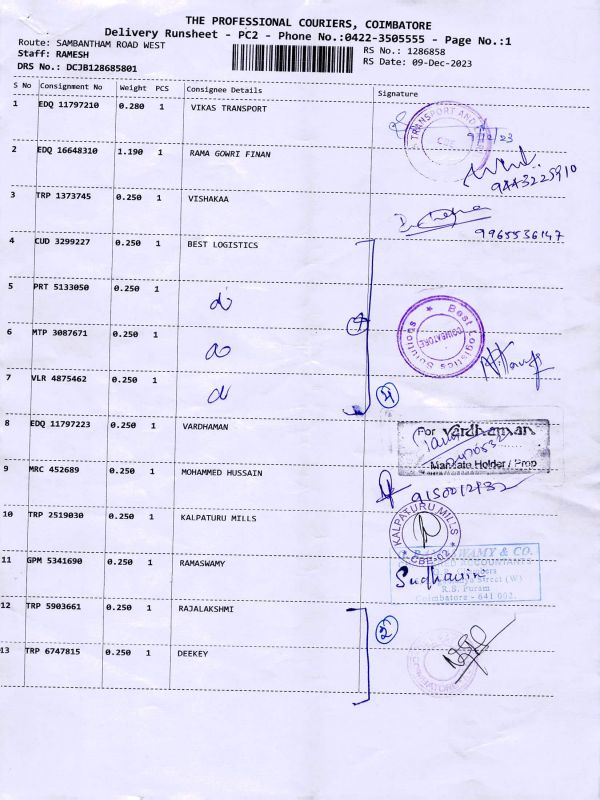 THE PROFESSIONAL COURIERS, COIMBATORE
Delivery Runsheet - PC2 - Phone No.:0422-3505555 - Page No.:1
Route: SAMBANTHAM ROAD WEST RS No.: 1286858
Staff: RAMESH RS Date: 09-Dec-2023
DRS No.: DCJB128685801
S No Consignment No Weight PCS Consignee Details Signature
1 EDQ 11797210 0.280 1 VIKAS TRANSPORT
TRANSPORT AND
CBE
9/12/23
2 EDQ 16648310 1.190 1 RAMA GOWRI FINAN
9443225910
3 TRP 1373745 0.250 1 VISHAKAA
9965536147
4 CUD 3299227 0.250 1 BEST LOGISTICS
5 PRT 5133050 0.250 1 do
6 MTP 3087671 0.250 1 do
7 VLR 4875462 0.250 1 do
4
Best Logistics Solutions
COIMBATORE
4
8 EDQ 11797223 0.250 1 VARDHAMAN
For Vardhaman
Mandate Holder / Prop
9 MRC 452689 0.250 1 MOHAMMED HUSSAIN
10 TRP 2519030 0.250 1 KALPATURU MILLS
KALPATURU MILLS
CBE-02
11 GPM 5341690 0.250 1 RAMASWAMY
WAMY & CO.
ACCOUNTANTS
Street (W)
R.S. Puram
Coimbatore - 641 002.
12 TRP 5903661 0.250 1 RAJALAKSHMI
2
13 TRP 6747815 0.250 1 DEEKEY
COIMBATORE